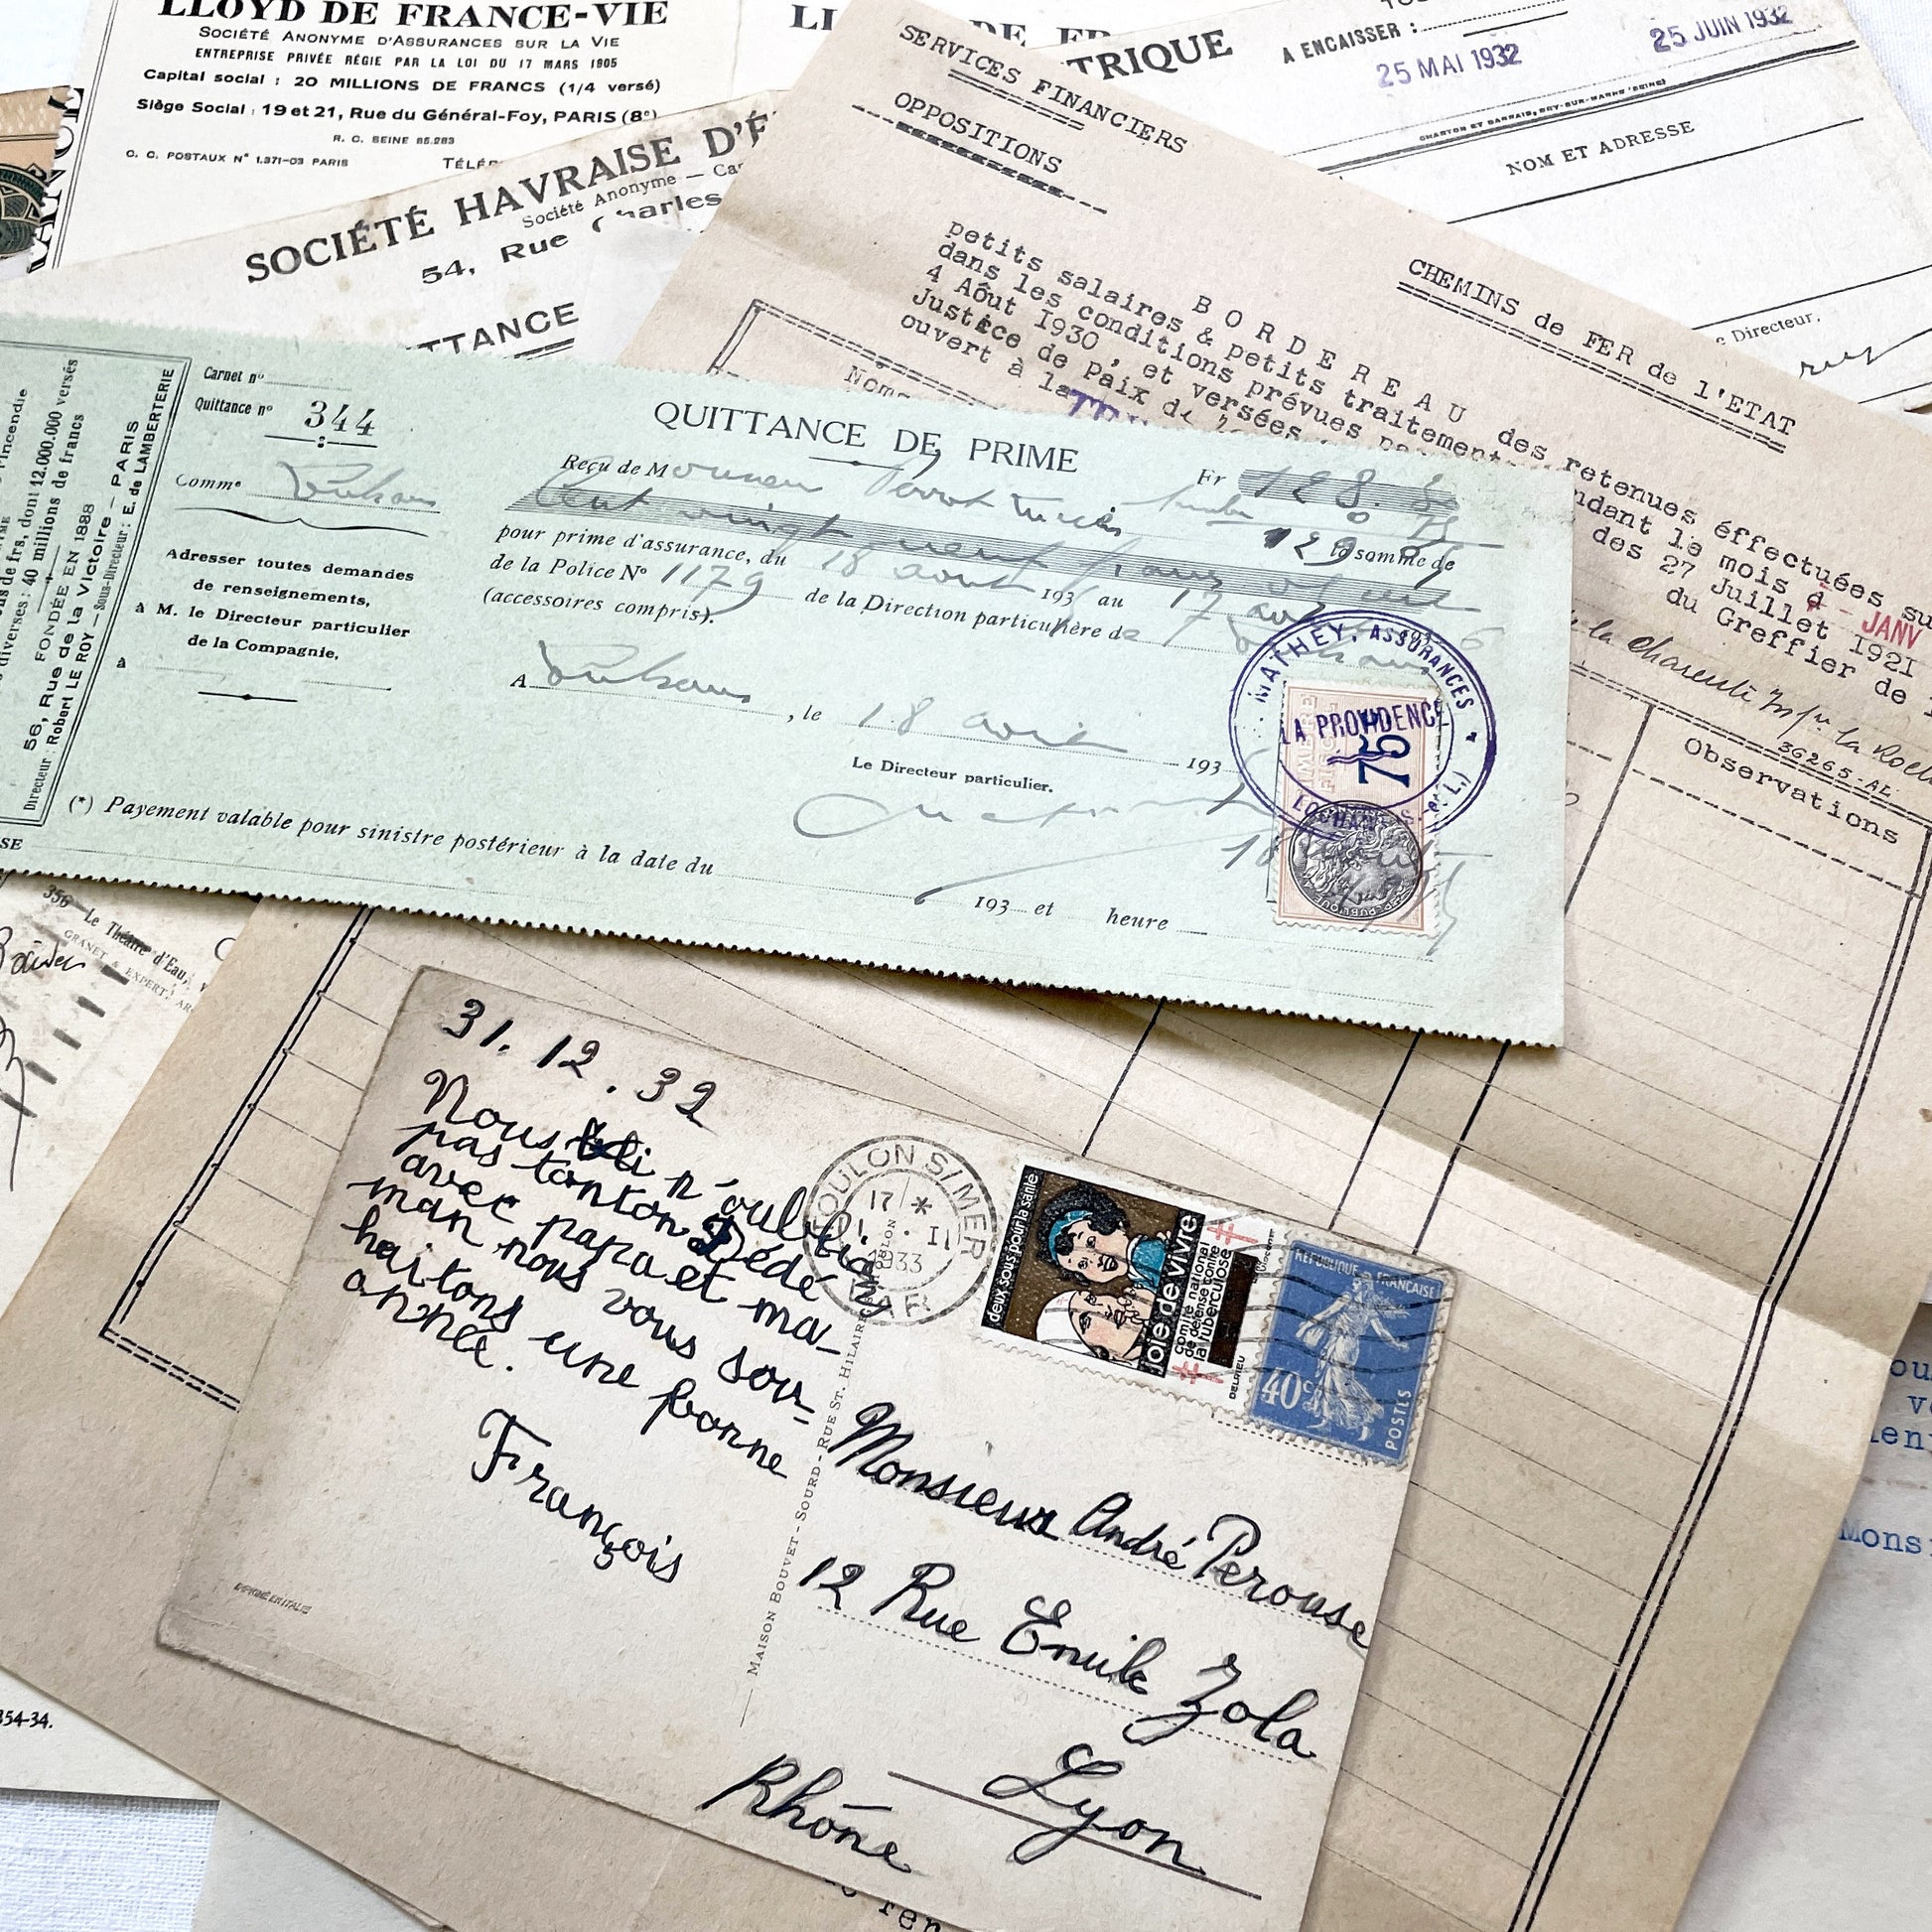 LLOYD DE FRANCE-VIE
SOCIÉTÉ ANONYME D'ASSURANCES SUR LA VIE
ENTREPRISE PRIVÉE RÉGIE PAR LA LOI DU 17 MARS 1905
Capital social : 20 MILLIONS DE FRANCS (1/4 versé)
Siège Social : 19 et 21, Rue du Général-Foy, PARIS (8e)
R. C. SEINE 85.283
C. C. POSTAUX N° 1.371-03 PARIS
TRIQUE
A ENCAISSER :
25 MAI 1932
25 JUIN 1932
NOM ET ADRESSE
Directeur,
SOCIÉTÉ HAVRAISE D'É
Société Anonyme
54, Rue Charles
TTANCE
SERVICES FINANCIERS
OPPOSITIONS
CHEMINS de FER de l'ETAT
B O R D E R E A U des retenues éffectuées su
petits salaires & petits traitement
dans les conditions prévues
des 27 Juillet 1921
4 Aôut 1930 , et versées
du Greffier de
Justice de Paix de
ouvert à la
JANV
Noms
la Charente
36265-AL
Observations
FONDÉE EN 1888
56, Rue de la Victoire - PARIS
Directeur : Robert LE ROY - Sous-Directeur : E. de LAMBERTERIE
Carnet n°
Quittance n° 344
Comme
Adresser toutes demandes
de renseignements,
à M. le Directeur particulier
de la Compagnie,
à
QUITTANCE DE PRIME
Reçu de Monsieur
Fr
129
la somme de
Cent vingt neuf francs
pour prime d'assurance, du 18 aout 193 au 17
de la Police N° 1179 de la Direction particulière de
(accessoires compris).
A , le 18 193
Le Directeur particulier.
MATHEY, ASSURANCES
LA PROVIDENCE
TIMBRE FISCAL
75
(*) Payement valable pour sinistre postérieur à la date du 193 et heure
356 Le Théâtre d'Eau,
31.12.32
Nous n'oublions
pas tonton Dédé
avec papa et ma-
man nous vous sou-
haitons une bonne
année.
François
IMPRIMÉ EN ITALIE
MAISON BOUVET - SOURD - RUE ST. HILAIRE
TOULON S/MER
17 *
1933
VAR
deux sous pour la santé
joie de vivre
comité national
de défense contre
la tuberculose
DELRIEU
RÉPUBLIQUE FRANÇAISE
40c
POSTES
Monsieur André Perouse
12 Rue Emile Zola
Lyon
Rhône
354-34.
Mons